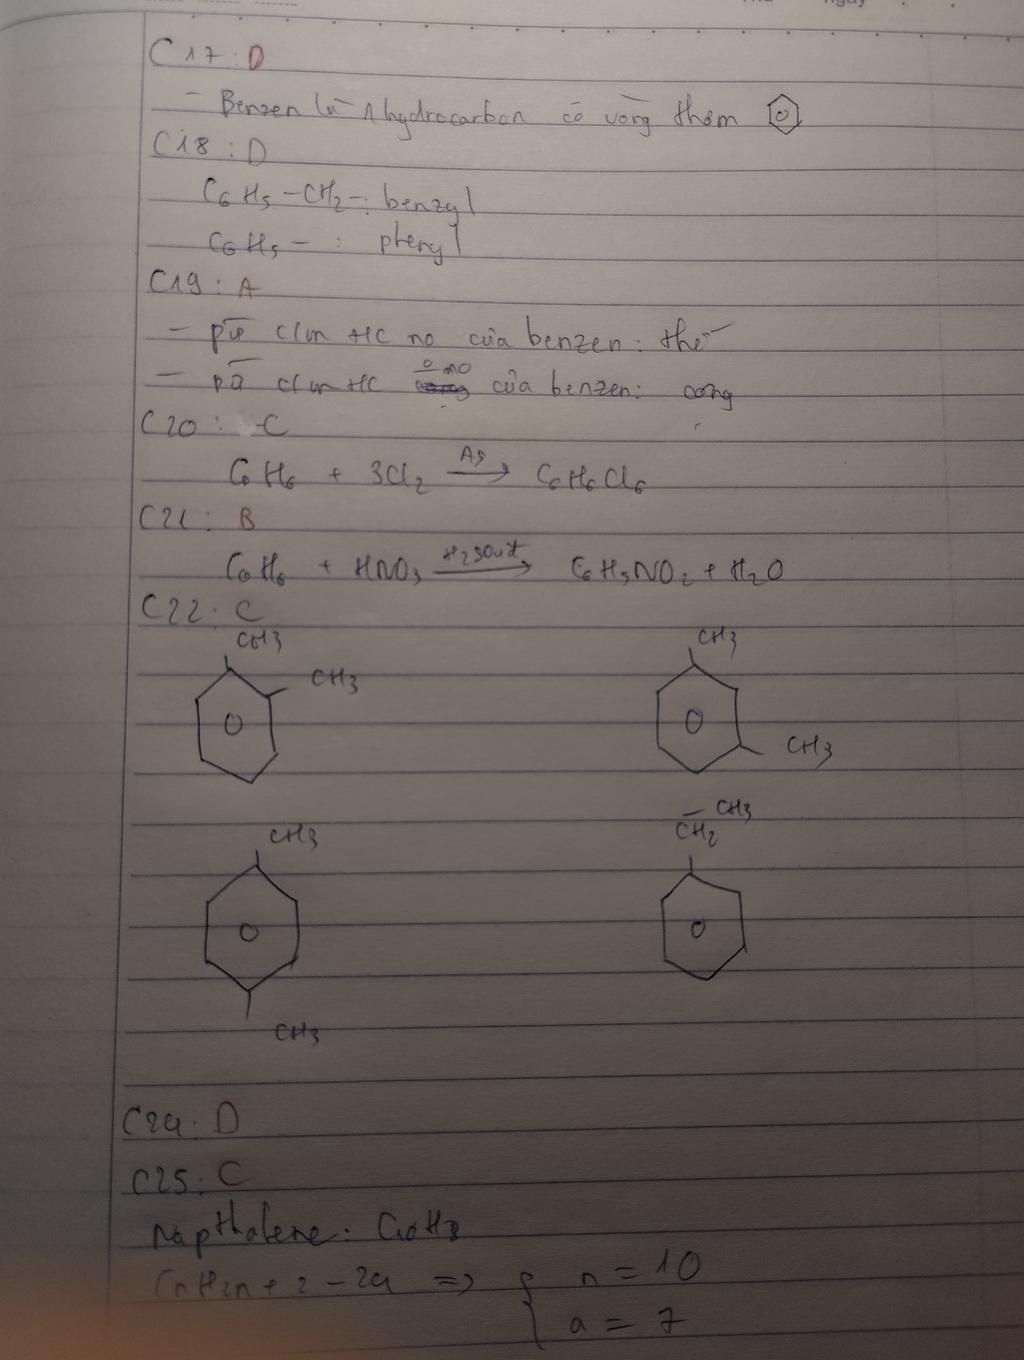 C17: D
- Benzen là 1 hydrocarbon có vòng thơm
C18: D
C6H5-CH2-: benzyl
C6H5-: phenyl
C19: A
- pư c/m HC no của benzen: thế
- pư c/m HC o no của benzen: cộng
C20: C
C6H6 + 3Cl2 AS → C6H6Cl6
C21: B
C6H6 + HNO3 H2SO4đ → C6H5NO2 + H2O
C22: C
CH3 CH3
CH3 CH3
CH3 CH2 - CH3
CH3
C24: D
C25: C
Napthalene: C10H8
CnH2n+2-2a => { n = 10
a = 7